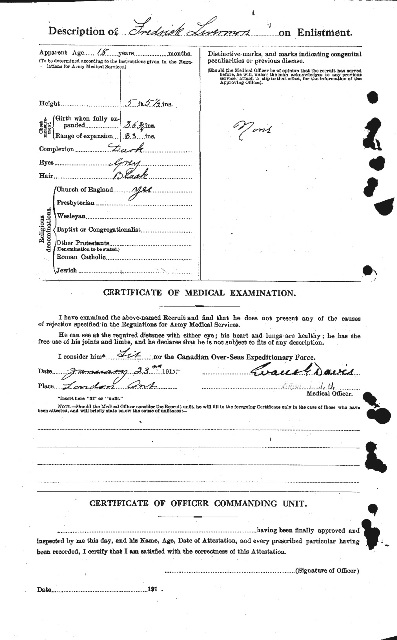 Description of Fredrick on Enlistment.
Apparent Age 18 years months.
(To be determined according to the instructions given in the Regulations for Army Medical Services.)
Distinctive marks, and marks indicating congenital peculiarities or previous disease.
(Should the Medical Officer be of opinion that the recruit has served before, he will, unless the man acknowledges to any previous service, attach a slip to that effect, for the information of the Approving Officer).
Height 5 ft. 5½ ins.
Chest measurement
Girth when fully expanded ins.
Range of expansion ins.
None
Complexion Dark
Eyes Grey
Hair Black
Religious denominations.
Church of England Yes
Presbyterian
Wesleyan
Baptist or Congregationalist
Other Protestants
(Denomination to be stated.)
Roman Catholic
Jewish
CERTIFICATE OF MEDICAL EXAMINATION.
I have examined the above-named Recruit and find that he does not present any of the causes
of rejection specified in the Regulations for Army Medical Services.
He can see at the required distance with either eye; his heart and lungs are healthy; he has the
free use of his joints and limbs, and he declares that he is not subject to fits of any description.
I consider him* fit for the Canadian Over-Seas Expeditionary Force.
Date January 23rd 1915. Davis
Place London Ont
Medical Officer.
*Insert here "fit" or "unfit."
NOTE.—Should the Medical Officer consider the Recruit unfit, he will fill in the foregoing Certificate only in the case of those who have
been attested, and will briefly state below the cause of unfitness:—
CERTIFICATE OF OFFICER COMMANDING UNIT.
having been finally approved and
inspected by me this day, and his Name, Age, Date of Attestation, and every prescribed particular having
been recorded, I certify that I am satisfied with the correctness of this Attestation.
(Signature of Officer)
Date 191 .